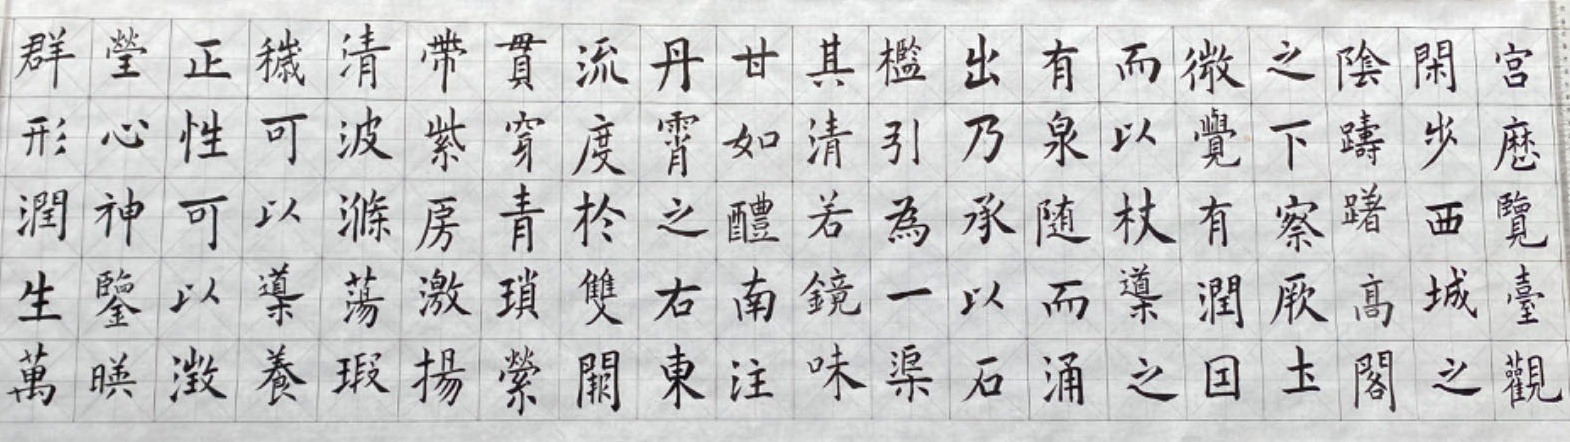 宮歷覽臺觀
閑步西城之
陰躊躇高閣
之下察厥土
微覺有潤因
而以杖導之
有泉随而涌
出乃承以石
檻引為一渠
其清若鏡味
甘如醴南注
丹霄之右東
流度於雙闕
貫穿青瑣縈
帶紫房激揚
清波滌蕩瑕
穢可以導養
正性可以澂
瑩心神鑒暎
群形潤生萬